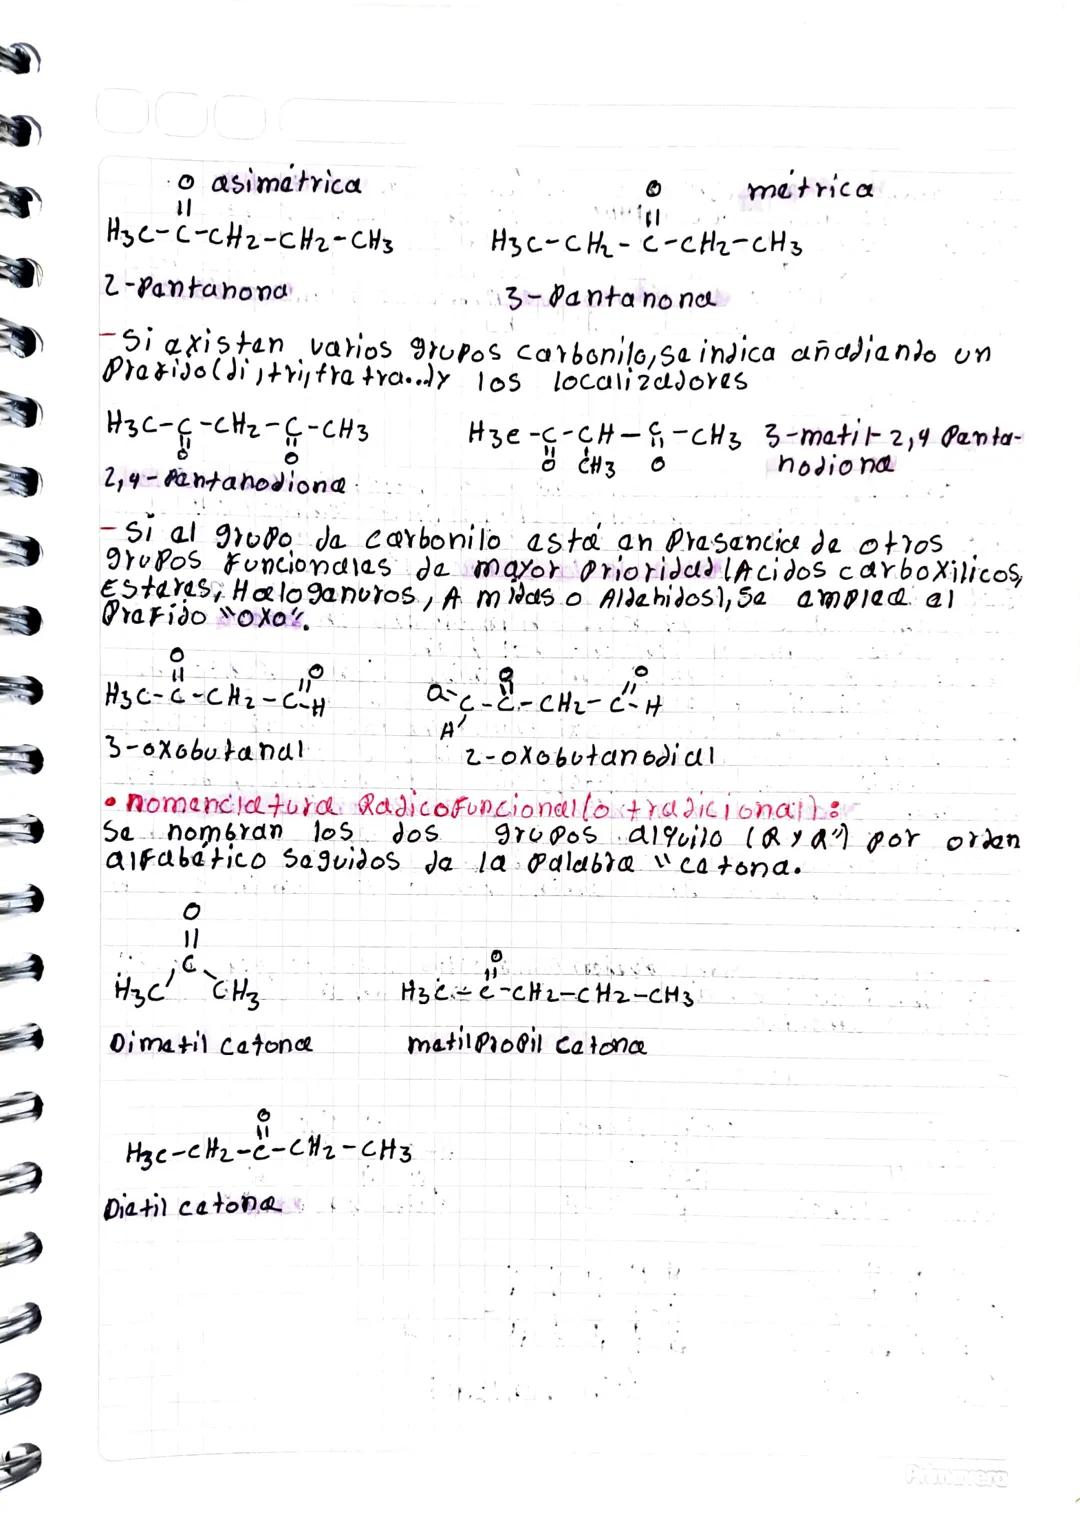 O asimétrica
O métrica
||
||
H3C-C-CH2-CH2-CH3
H3C-CH2-C-CH2-CH3
2-Pentanona
3-Pentanona
-Si existen varios grupos carbonilo, se indica añadiendo un
Prefijo(di, tri, tetra...)y los localizadores
H3C-C-CH2-C-CH3
H3C-C-CH-C-CH3 3-metil-2,4 Penta-
|| ||
|| | ||
O O
O CH3 O nodiona
2,4-Pentanodiona
-Si el grupo de carbonilo está en Presencia de otros
grupos Funcionales de mayor Prioridad (Acidos carboxilicos,
Esteres, Halogenuros, Amidas o Aldehidos), se emplea el
Prefijo "oxo".
O
||
H3C-C-CH2-C-H
O
O O
C-C-CH2-C-H
O
3-oxobutanal
2-oxobutanodial
• nomenclatura Radicofuncional(o tradicional):
Se nombran los dos grupos alquilo (R y R') por orden
alfabético seguidos de la palabra "cetona.
O
||
C
H3C CH3
O
||
H3C-C-CH2-CH2-CH3
Dimetil cetona
metilPropil cetona
O
||
H3C-CH2-C-CH2-CH3
Dietil cetona
Primavera